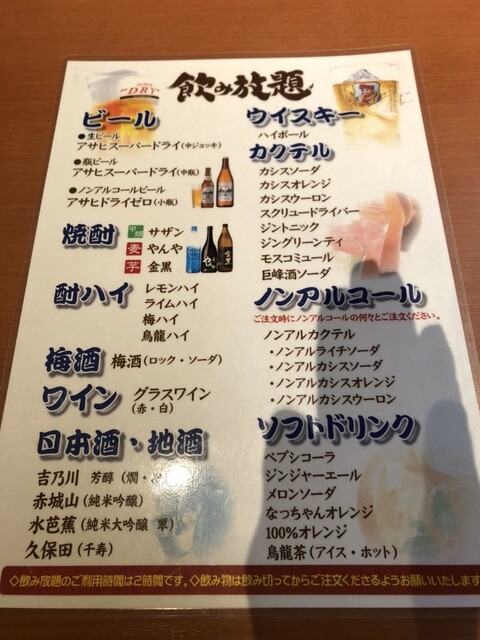 飲み放題
ビール
●生ビール
アサヒスーパードライ(中ジョッキ)
●瓶ビール
アサヒスーパードライ(中瓶)
●ノンアルコールビール
アサヒドライゼロ(小瓶)
焼酎
甲類 サザン
麦 やんや
芋 金黒
酎ハイ
レモンハイ
ライムハイ
梅ハイ
烏龍ハイ
梅酒
梅酒(ロック・ソーダ)
ワイン
グラスワイン
(赤・白)
日本酒・地酒
吉乃川 芳醇(燗・
赤城山(純米吟醸)
水芭蕉(純米大吟醸 翠)
久保田(千寿)
ウイスキー
ハイボール
カクテル
カシスソーダ
カシスオレンジ
カシスウーロン
スクリュードライバー
ジントニック
ジングリーンティ
モスコミュール
巨峰酒ソーダ
ノンアルコール
ご注文時にノンアルコールの何々とご注文ください。
ノンアルカクテル
・ノンアルライチソーダ
・ノンアルカシスソーダ
・ノンアルカシスオレンジ
・ノンアルカシスウーロン
ソフトドリンク
ペプシコーラ
ジンジャーエール
メロンソーダ
なっちゃんオレンジ
100%オレンジ
烏龍茶(アイス・ホット)
◇飲み放題のご利用時間は2時間です。◇飲み物は飲み切ってからご注文くださるようお願いいたします
DRY